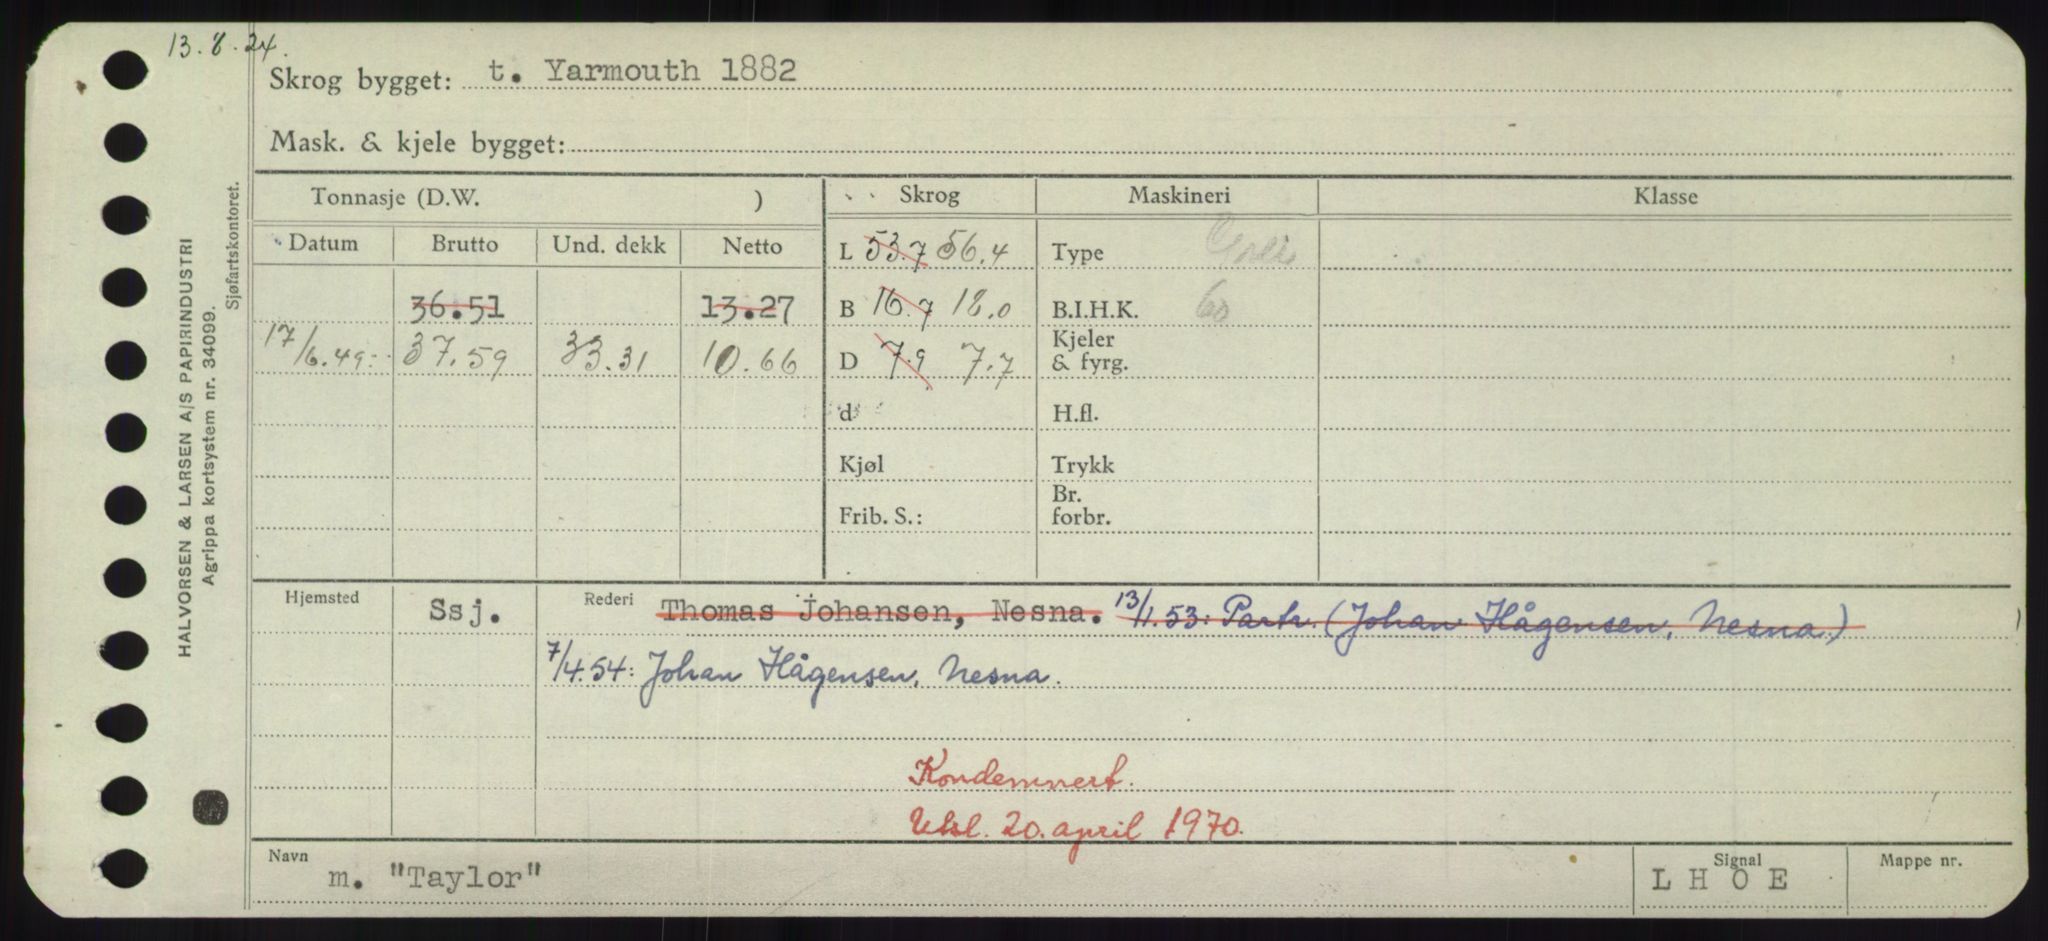 13.8.24.
Skrog bygget: t. Yarmouth 1882
Mask. & kjele bygget:
HALVORSEN & LARSEN A/S PAPIRINDUSTRI
Agrippa kortsystem nr. 34099.
Sjøfartskontoret.
Tonnasje (D.W. ) Skrog Maskineri Klasse
Datum Brutto Und. dekk Netto L 53.7 56.4 Type
36.51 13.27 B 16.7 18.0 B.I.H.K. 60
17/6.49: 37.59 33.31 10.66 D 7.9 7.7 Kjeler & fyrg.
d H.fl.
Kjøl Trykk
Frib. S.: Br. forbr.
Hjemsted Ssj. Rederi Thomas Johansen, Nesna. 13/1.53: Partr. (Johan Hågensen, Nesna.)
7/4.54: Johan Hågensen, Nesna.
Kondemnert.
Utsl. 20. april 1970.
Navn m. "Taylor" Signal L H O E Mappe nr.